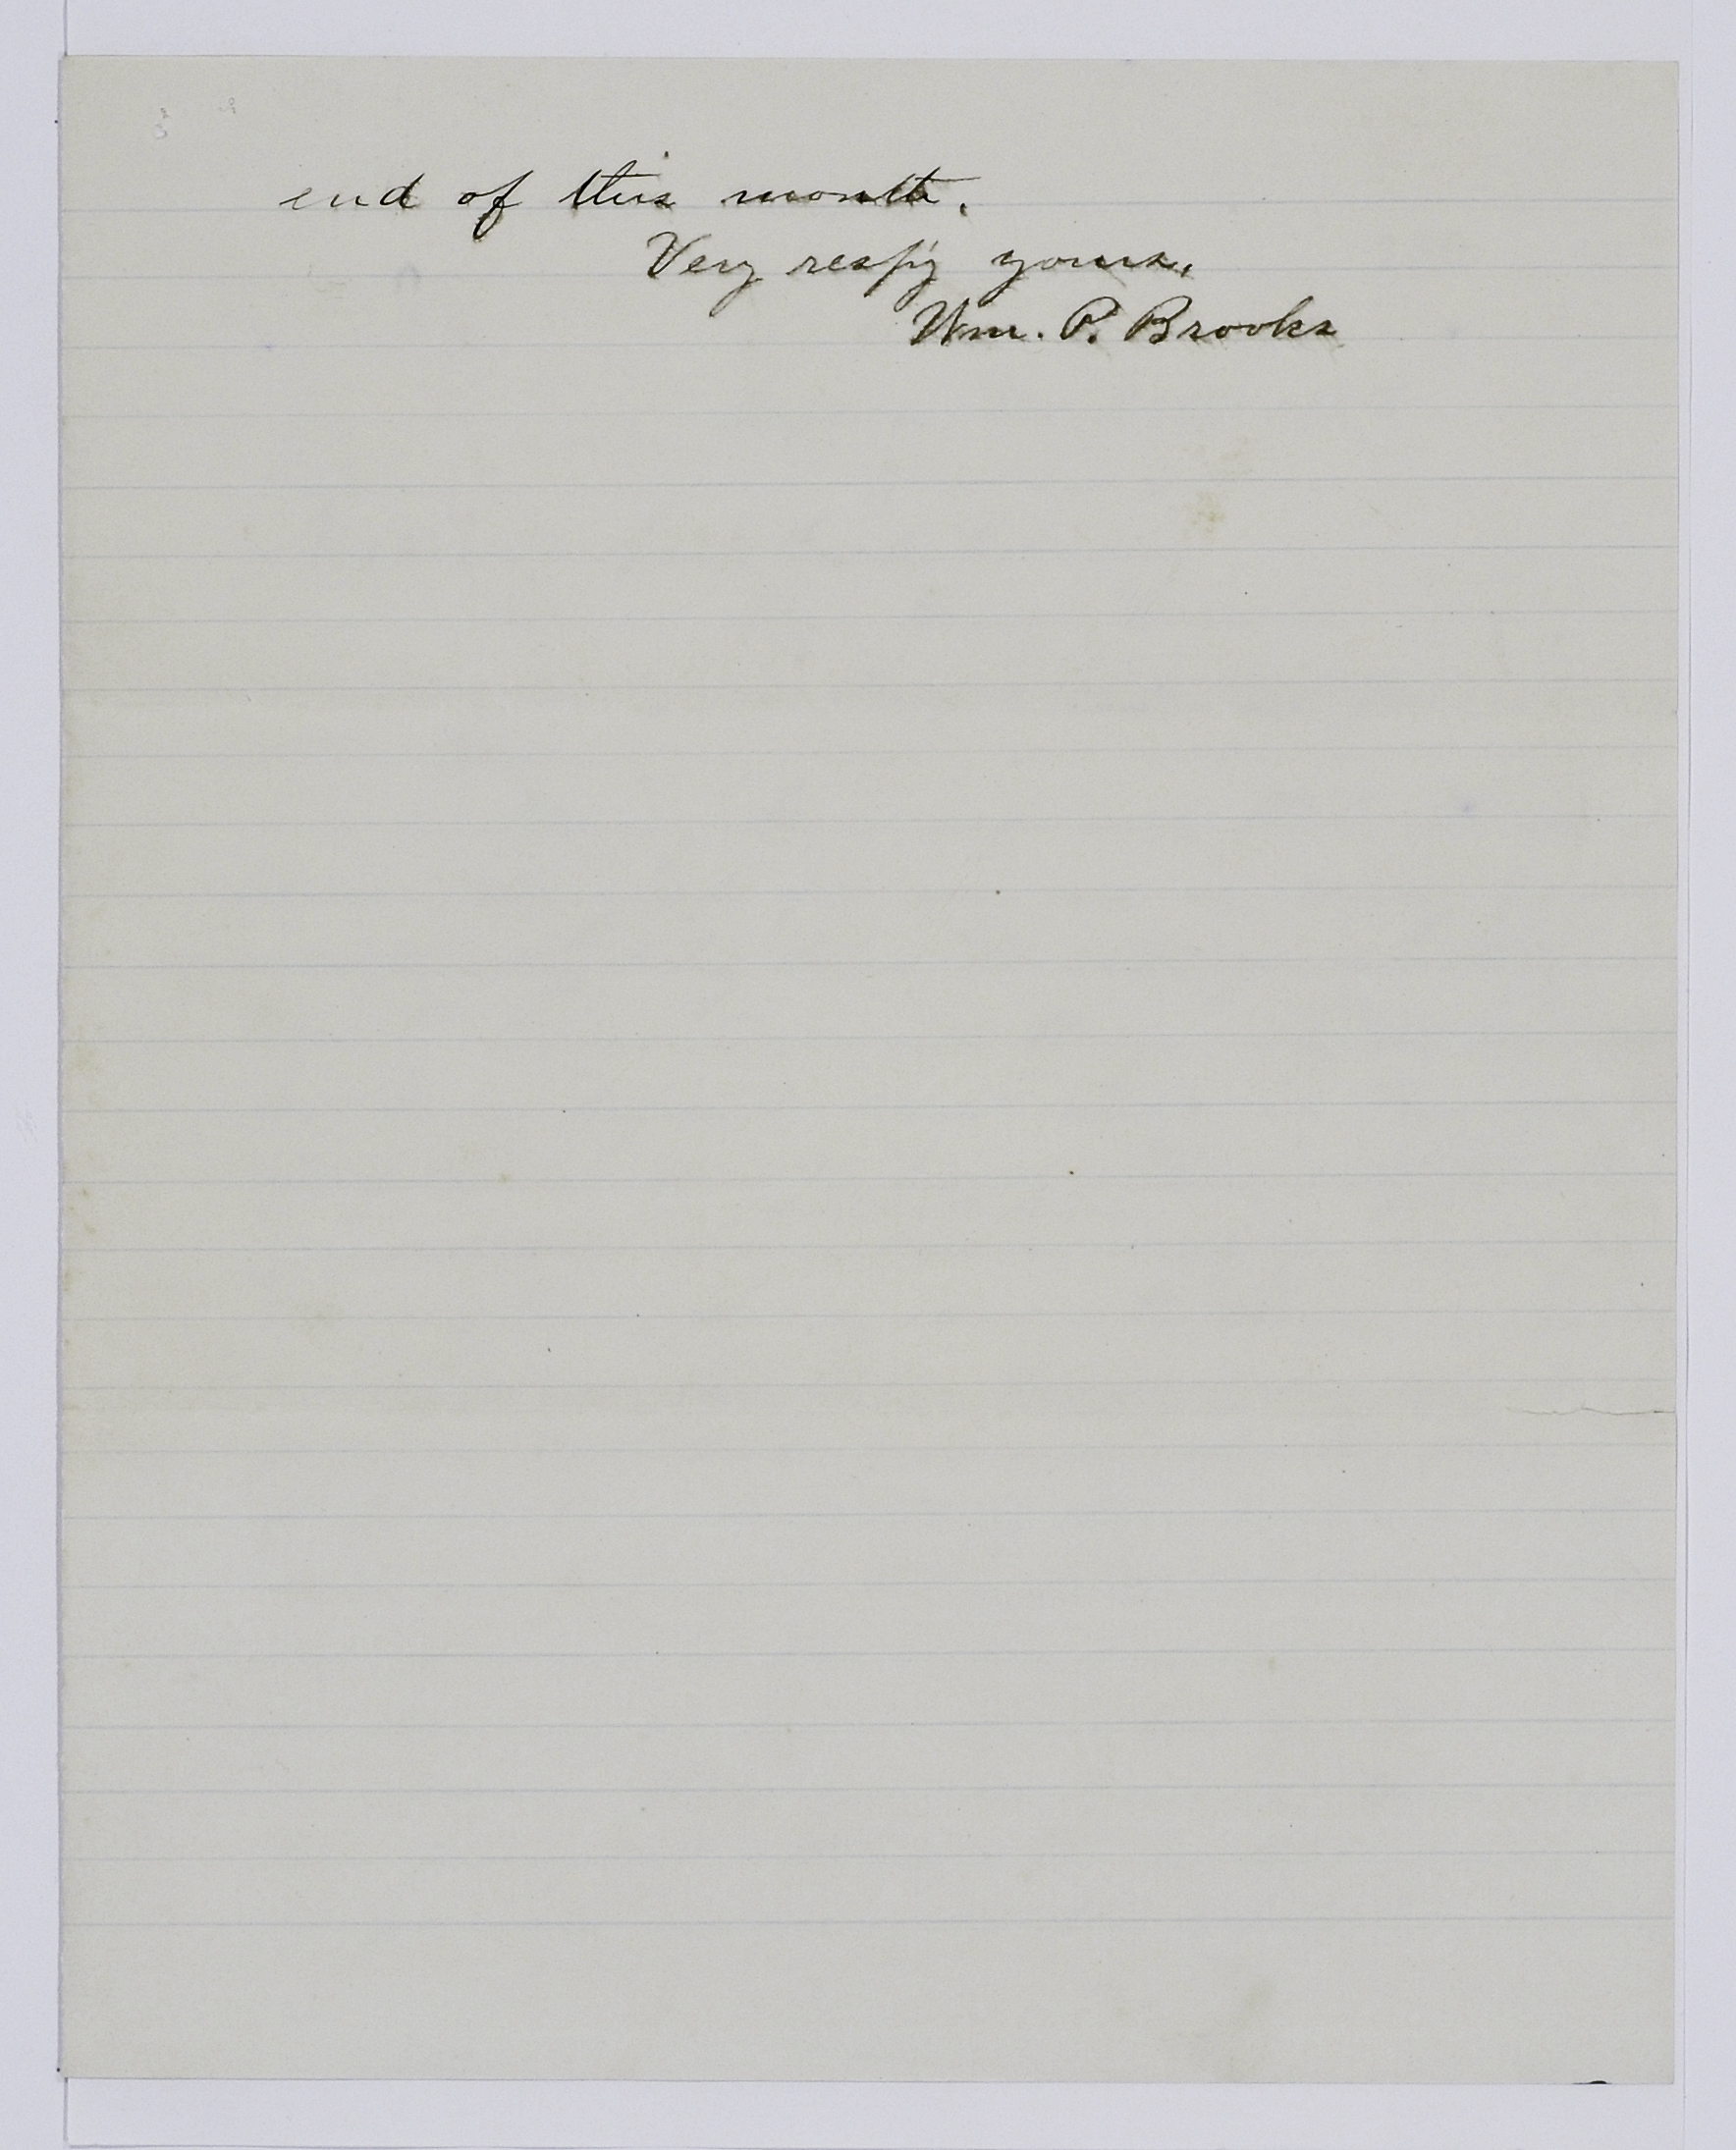 end of this month.
Very resp'y yours,
Wm. P. Brooks